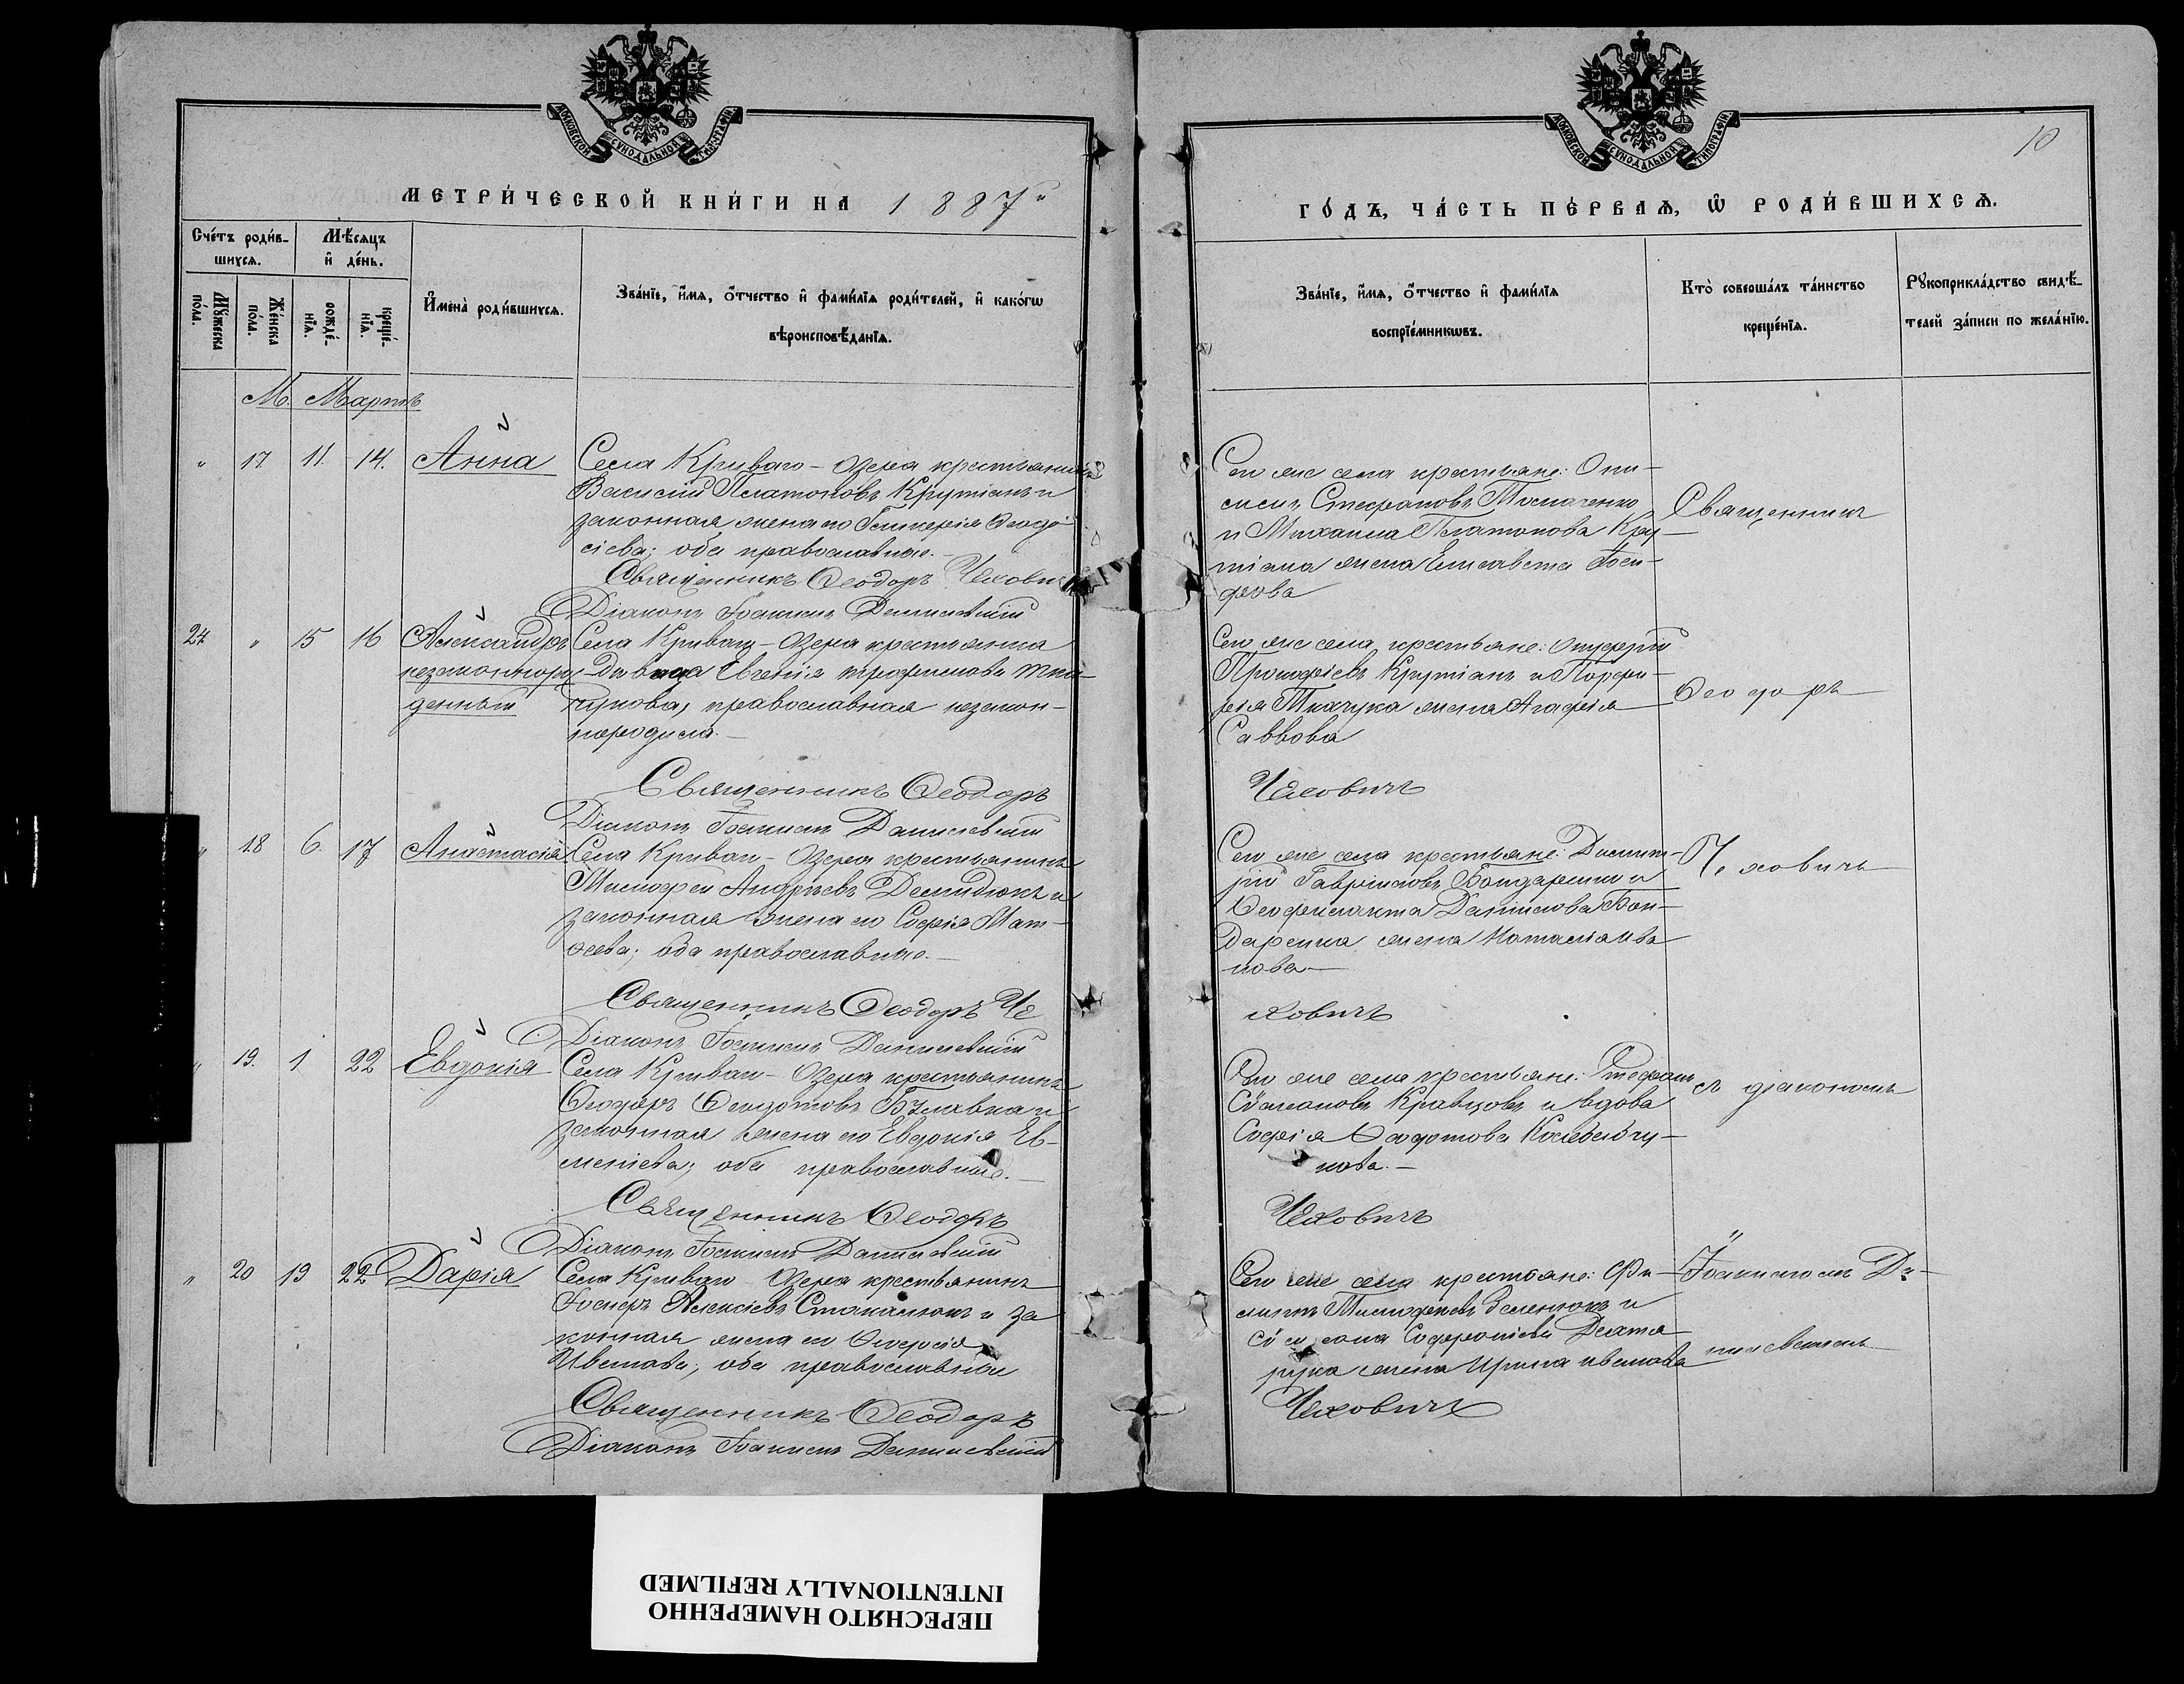 МОСКОВСКОЙ СѴНОДАЛЬНОЙ ТИПОГРАФІИ
МЕТРИ́ЧЕСКОЙ КНИ́ГИ НА 1887
Сче́тъ роди́в-
шихся.
Мѣ́сяцъ
и де́нь.
Мꙋ́жеска по́ла.
Же́нска по́ла.
рожде́-
нїѧ.
креще́-
нїѧ.
И҆мена̀ роди́вшихсѧ.
Зва́нїе, и҆́мѧ, ѻ҆́тчество и҆ фами́лїѧ роди́телей, и҆ како́гѡ
вѣроисповѣ́данїѧ.
М. Мартъ
" 17. 11. 14. Анна
Села Криваго-Озера крестьянинъ
Василій Платоновъ Крутіанъ и
законная жена его Гликерія Ѳеодо-
сіева; оба православные.-
Священникъ Ѳеодоръ Чехович
Діаконъ Іоаннъ Данилевскій
24 " 15 16 Александръ
незаконнорож
денный
Села Криваго-Озера крестьянка
девица Евгенія Трофимова Тка-
чукова, православная незакон-
нородила.-
Священникъ Ѳеодоръ
Діаконъ Іоаннъ Данилевскій
" 18 6. 17 Анастасія
Села Криваго-Озера крестьянинъ
Тимофей Андреевъ Демидюкъ и
законная жена его Софія Мат-
ѳеева; оба православные.-
Священникъ Ѳеодоръ Че
Діаконъ Іоаннъ Данилевскій
" 19. 1 22 Евдокія
Села Криваго-Озера крестьянинъ
Ѳеодоръ Ѳеодотовъ Булавка и
законная жена его Евдокія Ев-
меніева; оба православные.-
Священникъ Ѳеодоръ
Діаконъ Іоаннъ Данилевскій
" 20 19 22 Дарія
Села Криваго-Озера крестьянинъ
Алексіевъ и за
конная жена его
Иванова; оба православные
Священникъ Ѳеодоръ
Діаконъ Іоаннъ Данилевскій
МОСКОВСКОЙ СѴНОДАЛЬНОЙ ТИПОГРАФІИ
10
ГО́ДЪ, ЧА́СТЬ ПЕ́РВАѦ, Ѡ҆ РОДИ́ВШИХСѦ.
Зва́нїе, и҆́мѧ, ѻ҆́тчество и҆ фами́лїѧ
воспрїе́мникѡвъ.
Кто̀ соверша́лъ та́инство
креще́нїѧ.
Рꙋкоприкла́дство свидѣ́-
телей за́писи по жела́нїю.
Сего же села крестьяне: Они-
симъ Стефановъ Ткаченко
и Михаила Платонова Кру-
тіана жена Елисавета Іоси-
фова
Священникъ
Сего же села крестьяне: Онуфрій
Прокофіевъ Крутіанъ и Порфи-
рія Ткачука жена Агафія
Саввова
Ѳеодоръ
Чеховичъ
Сего же села крестьяне: Димит-
рій Гавріиловъ Бондаренко и
Ѳеофилакта Даніилова Бон-
даренка жена Наталія Ива
нова-
Чеховичъ
ховичъ
Сего же села крестьяне: Стефанъ
Кравцовъ и вдова
Софія Ѳеодотова
нова.-
съ діакономъ
Чеховичъ
Сего же села крестьяне: Фи-
липпъ Тимофеевъ Зеленюкъ и
Софроніева
жена Ирина Иванова
Іоанномъ Да-
нилевскимъ
Чеховичъ
ПЕРЕСНЯТО НАМЕРЕННО
INTENTIONALLY REFILMED